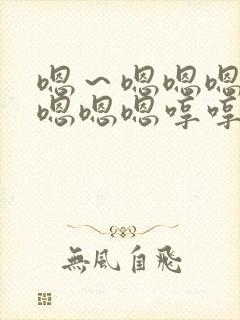 嗯～嗯嗯嗯
嗯嗯嗯哼哼
無風自飛